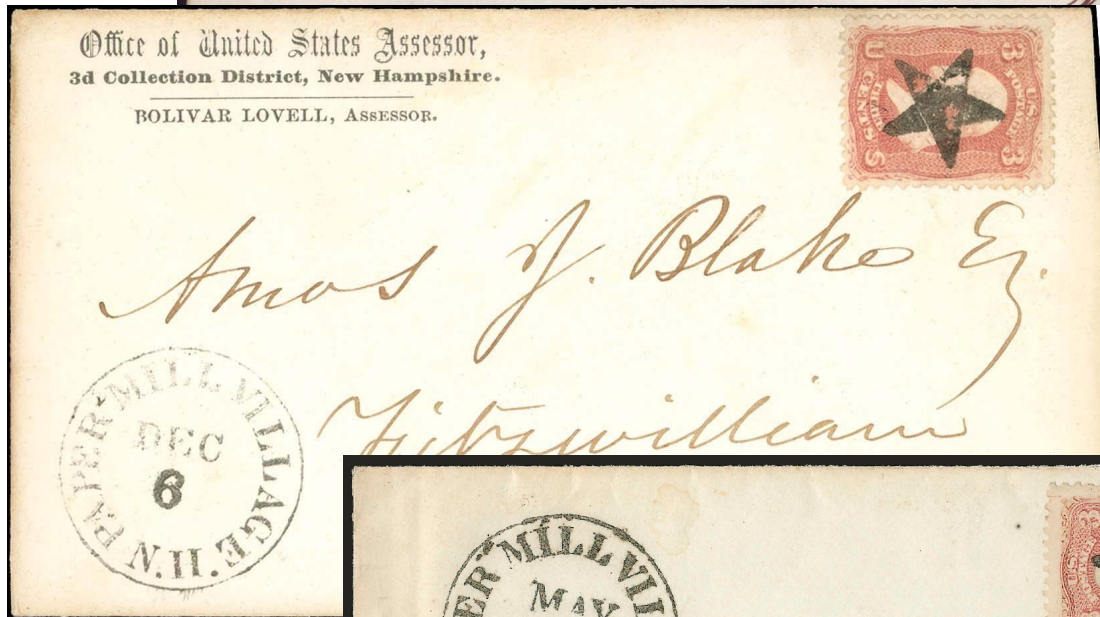 Office of United States Assessor,
3d Collection District, New Hampshire.
BOLIVAR LOVELL, ASSESSOR.
U 3
THREE CENTS
U.S. POSTAGE
S 3
Amos J. Blake Eq.
Fitzwilliam
PAPER MILL VILLAGE. N.H.
DEC
6
ER MILL VIL
MAY